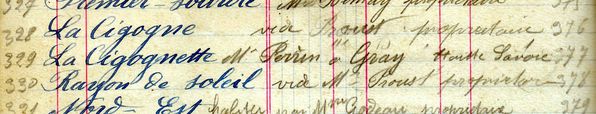 327 Premier-Sourire Mme propriétaire 375
328 La Cigogne vid Proust propriétaire 376
329 La Cigognette Mr Perrin à Gray Haute Savoie 377
330 Rayon de soleil vid Mr Proust propriétaire 378
331 Nord-Est par Mme Godeau propriétaire 379